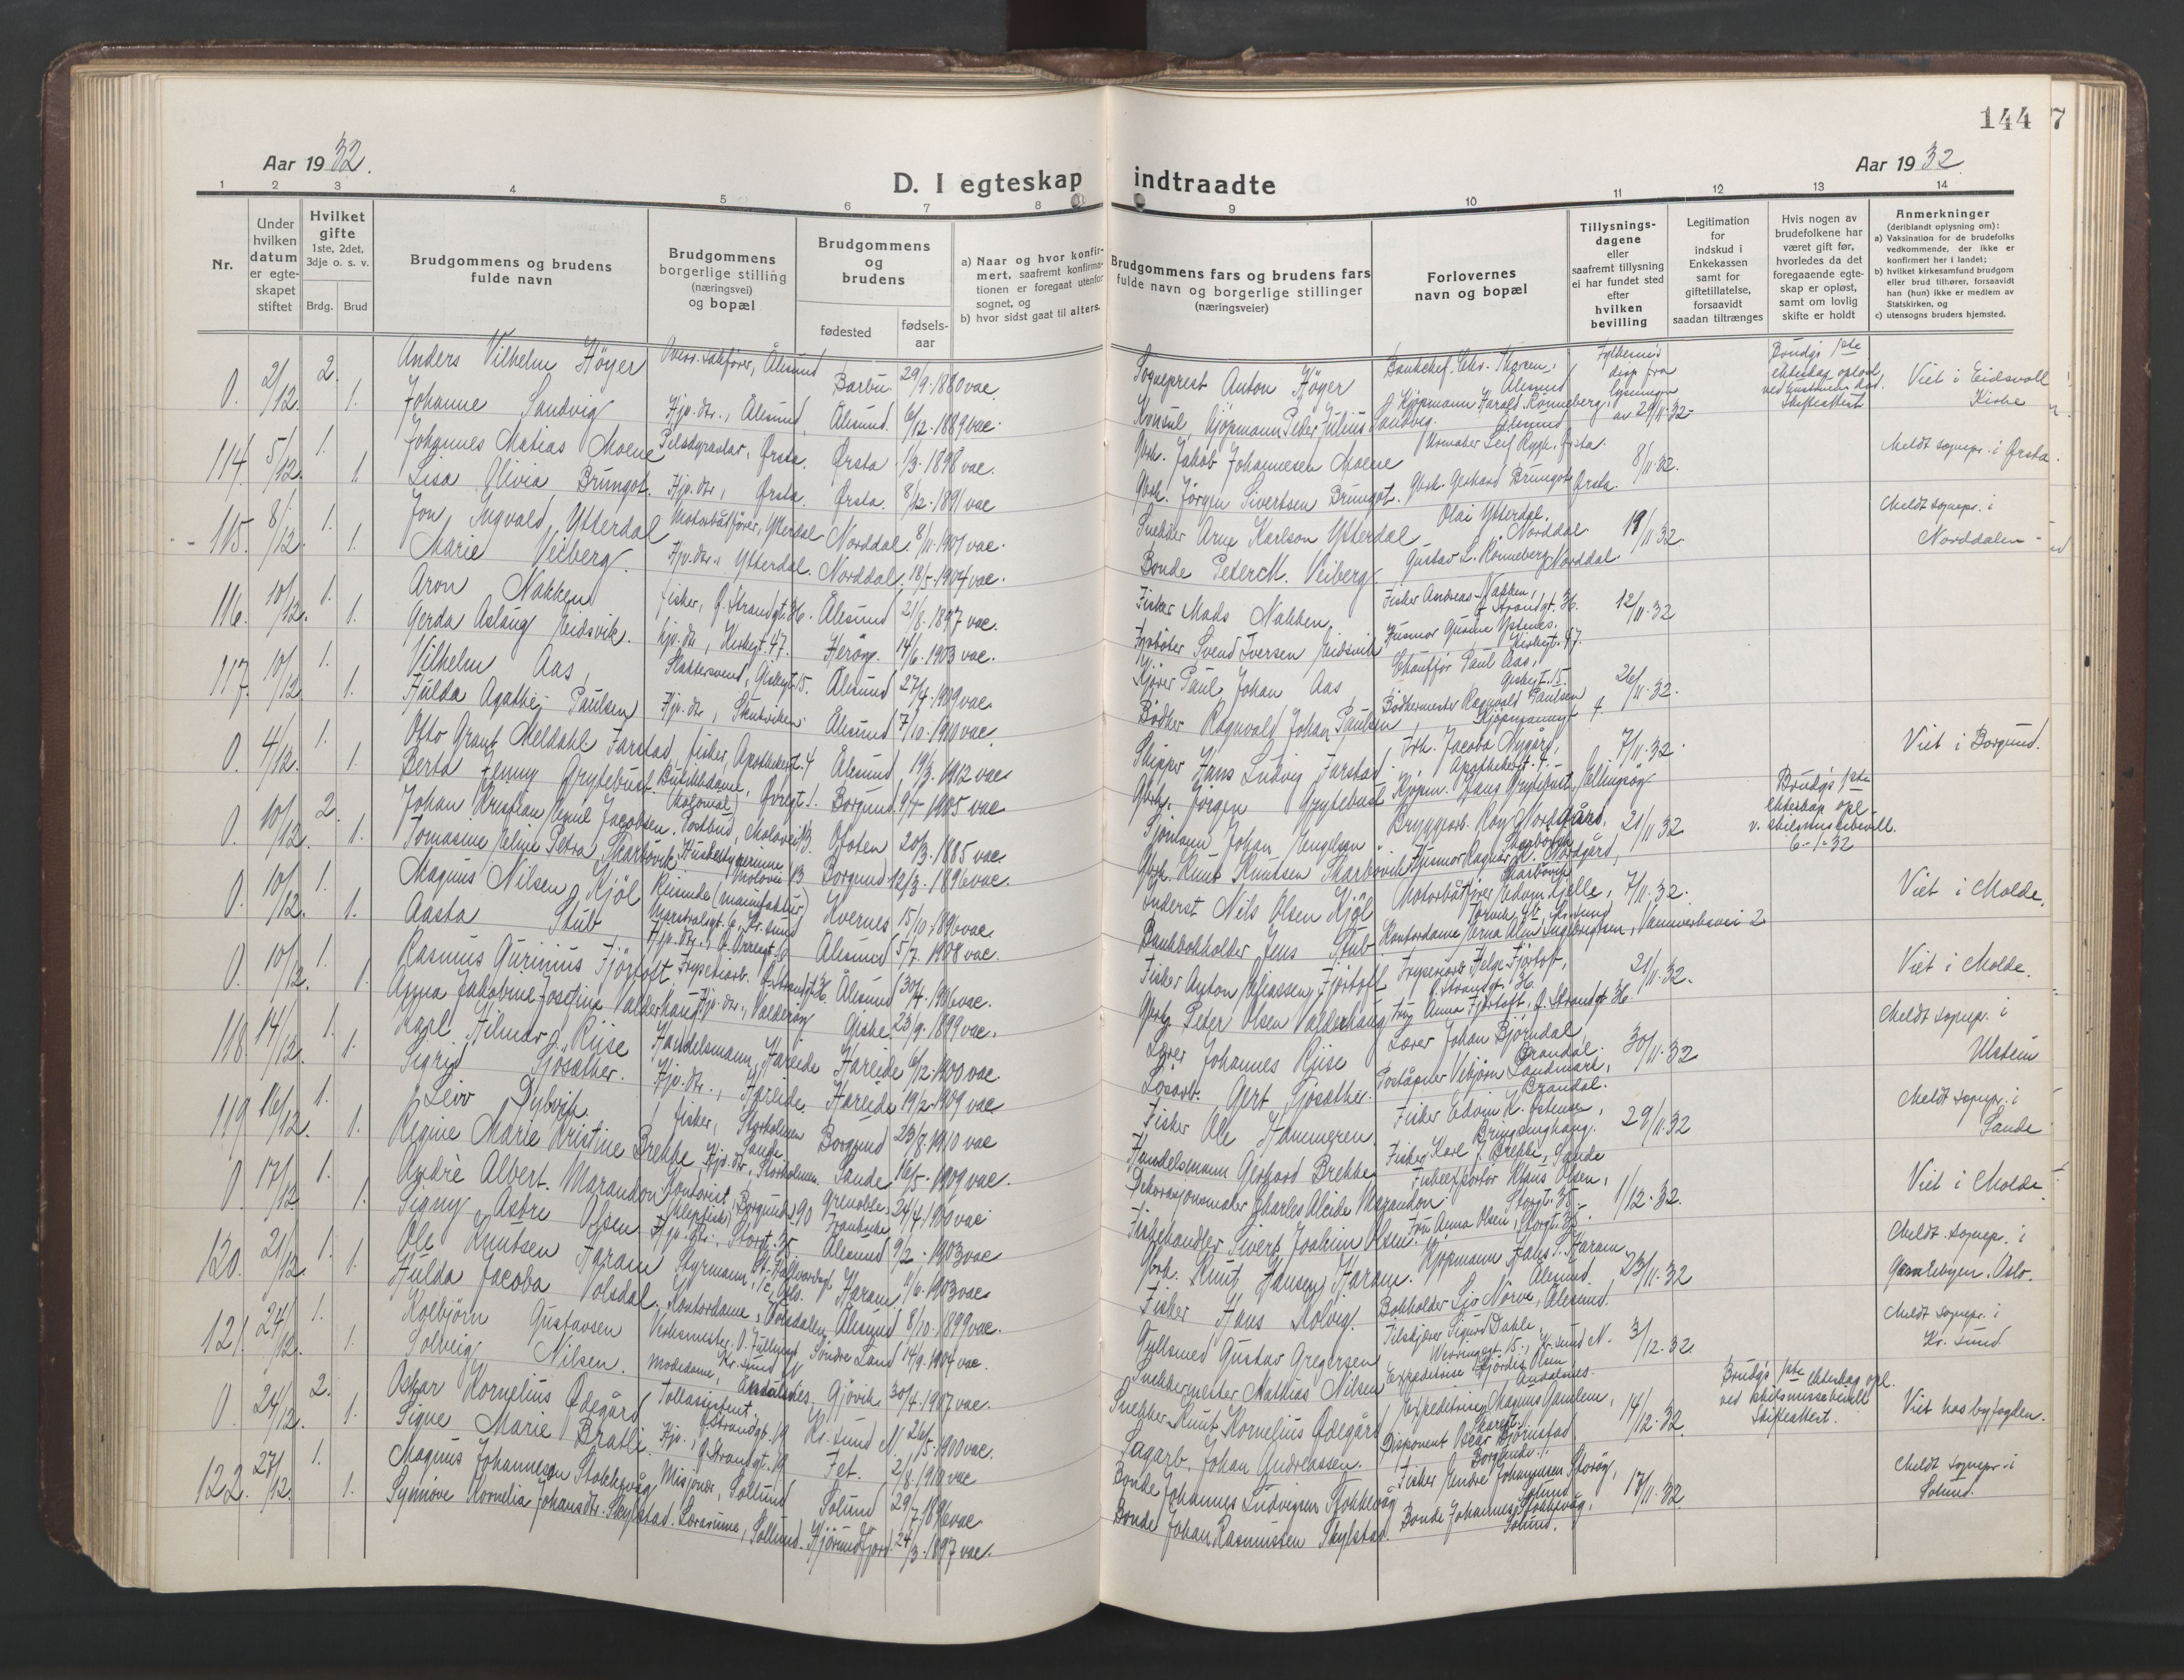 144 7
Aar 1932.
D. I egteskap indtraadte
Aar 1932
1 2 3 4 5 6 7 8 9 10 11 12 13 14
Nr.
Under hvilken datum er egteskapet stiftet
Hvilket gifte 1ste, 2det, 3dje o. s. v.
Brdg. Brud
Brudgommens og brudens fulde navn
Brudgommens borgerlige stilling (næringsvei) og bopæl
Brudgommens og brudens
fødested
fødselsaar
a) Naar og hvor konfirmert, saafremt konfirmationen er foregaat utenfor sognet, og
b) hvor sidst gaat til alters.
Brudgommens fars og brudens fars fulde navn og borgerlige stillinger (næringsveier)
Forlovernes navn og bopæl
Tillysningsdagene eller saafremt tillysning ei har fundet sted efter hvilken bevilling
Legitimation for indskud i Enkekassen samt for giftetillatelse, forsaavidt saadan tiltrænges
Hvis nogen av brudefolkene har været gift før, hvorledes da det foregaaende egteskap er opløst, samt om lovlig skifte er holdt
Anmerkninger (deriblandt oplysning om):
a) Vaksination for de brudefolks vedkommende, der ikke er konfirmert her i landet;
b) hvilket kirkesamfund brudgom eller brud tilhører, forsaavidt han (hun) ikke er medlem av Statskirken, og
c) utensogns bruders hjemsted.
0. 2/12. 2. Anders Vilhelm Höyer Overr.sakförer, Ålesund Barbu 29/9. 1880 vac. Sogneprest Anton Höyer Bankchef Chr. Thoren, Ålesund Fylkem's disp fra lysningen av 29/11-32- Brudgs 1ste ekteskap opløst ved hustruens död. Skifteattest Viet i Eidsvoll Kirke
1. Johanne Sandvig Hjv. dtr., Ålesund, Ålesund. 6/12. 1889 vac. Konsul, Kjöpmann Peter Julius Sandvig. Kjöpmann Harald Rönneberg, Ålesund
114. 5/12. 1. Johannes Matias Moene Pelsdyravlar, Ørsta. Ørsta 1/3. 1898 vac. Gbrk. Jakob Johannesen Moene Urmaker Leif Rygh, Ørsta. 8/11. 32. Meldt sognepr. i Ørsta.
1. Lisa Olivia Brungot. Hjv. dtr., Ørsta. Ørsta. 8/12. 1891 vac Gbrk. Jörgen Sivertsen Brungot. Gbrk. Gerhard Brungot Ørsta.
115. 8/12. 1. Jon Ingvald Ytterdal Motorbåtförer, Ytterdal Norddal. 8/11. 1901 vac. Snekker Arne Karlson Ytterdal Olai Ytterdal, Norddal. 19/11. 32. Meldt sognepr. i Norddalen
1. Marie Veiberg. Hjv. dtr., Ytterdal. Norddal. 18/5. 1904 vac. Bonde Peter M. Veiberg. Gustav L. Rönneberg, Norddal.
116. 10/12. 1. Aron Nakken fisker, Ö. Strandgt. 36. Ålesund 21/8. 1897 vac. Fisker Mads Nakken. Fisker Andreas Nakken, Ö Strandgt. 36. 12/11. 32
1. Gerda Aslaug Eidsvik. hjv. dtr, Kirkegt. 47. Heröy. 14/6. 1903 vac. Svend Iversen Eidsvik Kirkegt. 47.
117. 10/12. 1. Vilhelm Aas, Slaktersvend, Giskegt. 15. Ålesund 27/4. 1909 vac. Kjörer Paul Johan Aas Chaufför Paul Aas, Giskegt. 15. 26/11. 32.
1. Hulda Agathe Paulsen Hjv. dtr, Skutviken. Ålesund 7/10. 1910 vac. Bödker Ragnvald Johan Paulsen, Bödkermester Ragnvald Paulsen Kjöpmannsgt 4.
0. 4/12. 1. Otto Grant Meldahl Farstad, fisker, Apothekergt. 4 Ålesund 19/3. 1912 vac Skipper Hans Ludvig Farstad. Frk. Jacoba Nygård, Apothekergt. 4. 7/11. 32. Viet i Borgund.
1. Berta Jenny Grytebust. Butikkdame, Övregt. 1. Borgund 9/4. 1905 vac Gbrk. Jörgen Grytebust Kjöpm. Hans Grytebust, Ellingsöy
0. 10/12. 2. Johan Kristian Emil Jacobsen. Postbud, Moloveien 13. Ofoten 20/3. 1885 vac. Sjömann Johan Engelsen Bryggearb. Roy Nordgård. Skarbövik 21/11 32 Brudgs 1ste ekteskap opl. v. skilsmissebevill. 6-1-32
1. Tomasine Eline Petra Skarbövik, Husbestyrerinne Moloveien 13 Borgund. 12/3. 1896 vac. Gbrk. Knut Knutsen Skarbövik Husmor Ragna Nordgård, Skarbövik
0. 10/12. 1. Magnus Nilsen Kjöl Reisende (manufaktur) Kr. sund Kvernes 15/10. 1896 vac. Inderst Nils Olsen Kjöl Motorbåtförer Edvin Gjelle, Kr.sund 7/11. 32. Viet i Molde.
1. Aasta Stub Hjv. dtr., Ålesund 5/7. 1908 vac. Bankbokholder Jens Stub Kontordame Erna Alm Ingebrigtsen,
0. 10/12. 1. Rasmus Qurinius Fjörtoft Fryseriarb. Ö. Strandgt 36. Ålesund 30/4. 1906 vac. Fisker Anton Eliassen Fjörtoft Fryseriarb. Helge Fjörtoft, Ö. Strandgt. 36. 21/11. 32. Viet i Molde.
1. Anna Jakobine Josefine Valderhaug. Hjv. dtr., Valderöy Giske 23/9. 1899 vac. Gbrk. Peter Olsen Valderhaug Fru Anna Fjörtoft, Ö. Strandgt 36.
118. 14/12. 1. Karl Hilmar Riise Handelsmann, Hareide Hareide 6/12. 1900 vac. Lærer Johannes Riise Lærer Johan Björndal, Brandal. 30/11. 32 Meldt sognepr. i Ulstein
1. Sigrid Gjösæther. Hjv. dtr., Hareide. Hareide 19/2. 1909 vac Lösarb. Gert Gjösæther. Poståpner Vebjörn Landmark, Brandal.
119 16/12. 1. Leiv Dybvik. fisker, Storholmen Sande Borgund 23/8. 1910 vac Fisker Ole Hammeren. Fisker Edvin K. Ostensen, Bringsinghaug. 29/11. 32 Meldt sognepr. i Sande
1. Regine Marie Kristine Brekke, Hjv. dtr, Storholmen. Sande 16/5. 1909 vac. Handelsmann Gerhard Brekke Fisker Karl J. Brekke, Sande
0. 17/12 1. Andrè Albert Marandon Kontorist, Borgundv. 90 Grenoble, Frankrike 24/4. 1900 vac Dekorasjonsmaler Charles Alcide Marandon. Fiskeeksportör Klaus Olsen, Storgt. 35. 1/12. 32. Viet i Molde
1. Signy Astre Olsen. Hjv. dtr., Storgt. 35. Ålesund 9/2. 1903 vac Fiskehandler Sivert Joakim Olsen. Fru Anna Olsen, Storgt. 35.
120. 21/12. 1. Ole Knutsen Haram Styrmann, St. Hallvardsgt. Oslo. Haram. 11/6. 1903 vac Gbrk. Knut Hansen Haram. Kjöpmann Hans S. Haram Ålesund. 23/11. 32 Meldt sognep. i Gamlebyen, Oslo.
1. Hulda Jacoba Volsdal. Kontordame, Volsdalen. Ålesund 8/10. 1899 vac. Fisker Hans Solvig. Bokholder Siv Nörve, Ålesund.
121. 24/12. 1. Kolbjörn Gustavsen Verksmester, Kr. sund N Söndre Land 14/9. 1904 vac. Gullsmed Gustav Gregersen Pelskjörer Sigurd Dahle, Kr.sund N. 3/12. 32 Meldt sognepr. i Kr. sund
1. Solveig Nilsen. Modedame, Åndalsnes. Gjövik 30/4. 1907 vac. Snekkermester Mathias Nilsen Expeditrise Hjördis Olsen Åndalsnes.
0. 24/12. 2. Oskar Kornelius Ödegård Tollassistent, Ö Strandgt. 19 Kr. sund N. 26/5. 1900 vac. Snekker Knut Kornelius Ödegård Magnus Gamlem, 14/12. 32 Brudgs 1ste ekteskap opl. ved skilsmissebevill Skifteattest. Viet hos byfogden.
1. Signe Marie Bratli. Hjv., Ö. Strandgt. 19 Fet. 2/8. 1910 vac Sagarb. Johan Andreassen. Disponent Oscar Björnstad Borgundv.
122. 27/12. 1. Magnus Johannesen Stokkevåg Misjonær, Sollund Solund 29/7. 1896 vac Bonde Johannes Ludvigsen Stokkevåg Fisker Endre Johannesen Storöy, Solund 17/11. 32 Meldt sognepr. i Solund.
1. Synnöve Kornelia Johansdtr. Skylstad. Lærarinne, Sollund. Hjörundfjord. 24/3. 1897 vac. Bonde Johan Rasmussen Skylstad. Bonde Johannes Stokkevåg, Solund.